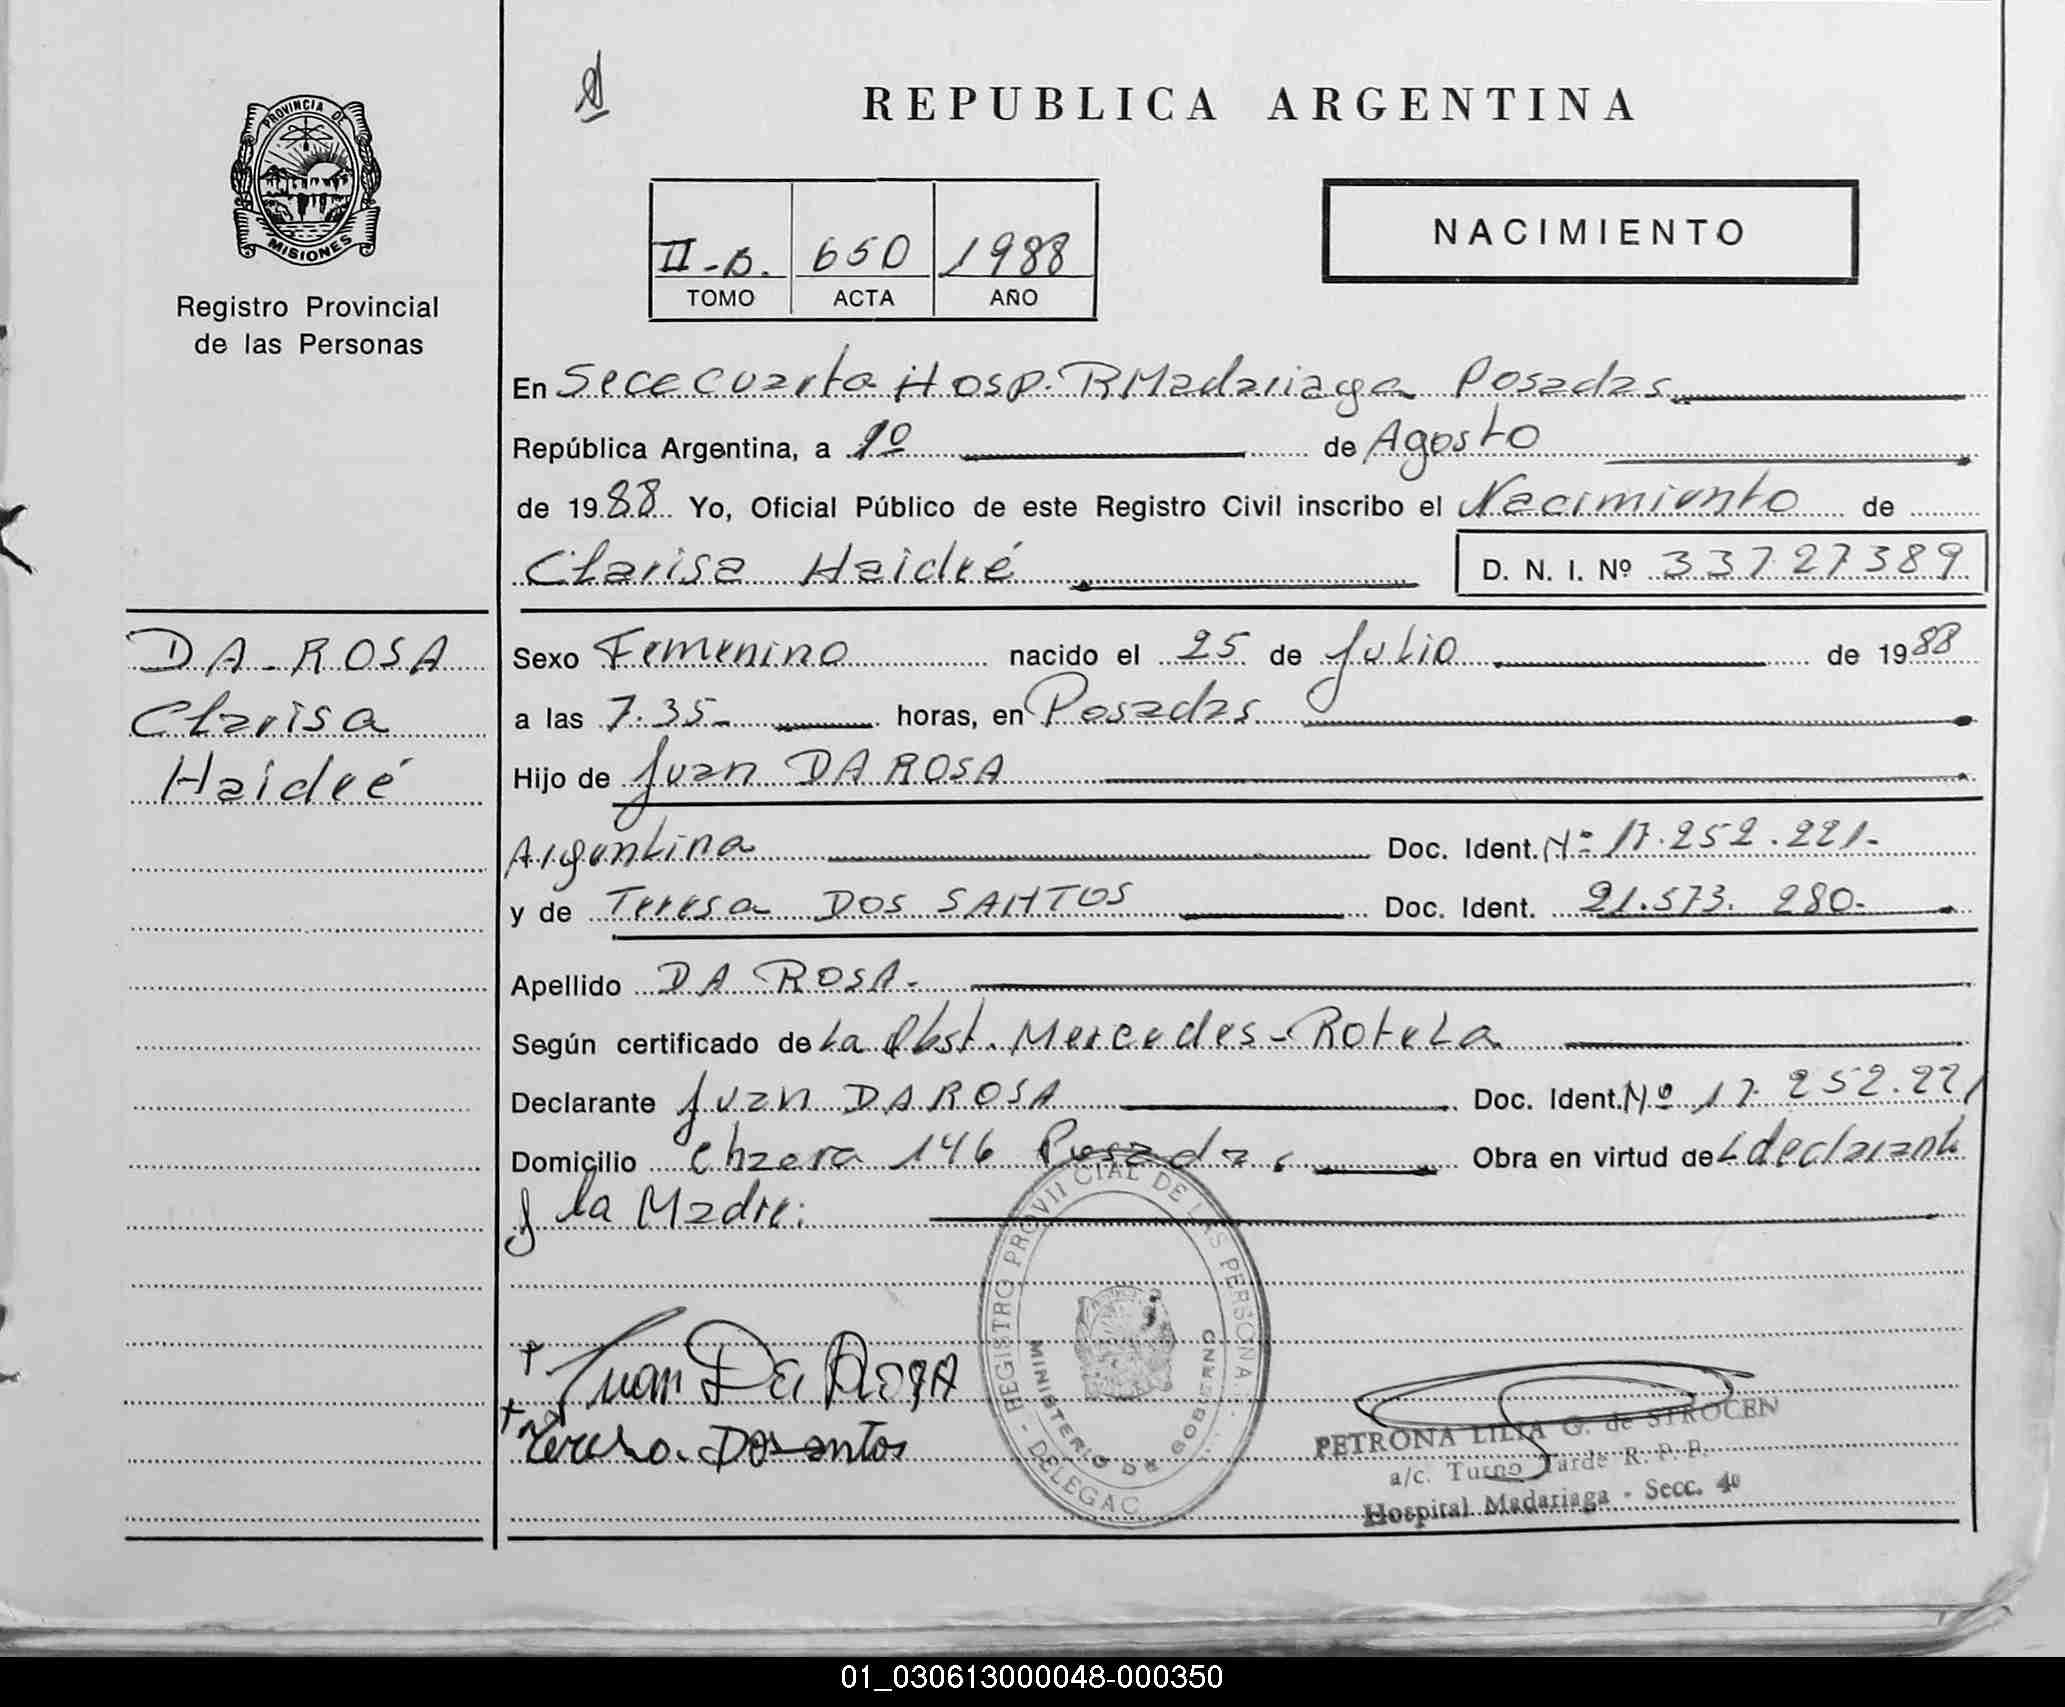 PROVINCIA DE
MISIONES
Registro Provincial
de las Personas
REPUBLICA ARGENTINA
II-B. 650 1988
TOMO ACTA AÑO
NACIMIENTO
En Secc cuarta Hosp. R Madariaga Posadas
República Argentina, a 1º de Agosto
de 1988 Yo, Oficial Público de este Registro Civil inscribo el Nacimiento de
Clarisa Haideé D. N. I. Nº 33727389
DA-ROSA
Clarisa
Haideé
Sexo Femenino nacido el 25 de Julio de 1988
a las 7.35- horas, en Posadas
Hijo de Juan DA ROSA
Argentina Doc. Ident. Nº 17.252.221-
y de Teresa DOS SANTOS Doc. Ident. 21.573.280-
Apellido DA ROSA-
Según certificado de La Obst. Mercedes-Rotela
Declarante Juan DA ROSA Doc. Ident. Nº 17.252.221
Domicilio Chacra 146 Posadas Obra en virtud de L declarante
y la Madre:
REGISTRO PROVINCIAL DE LAS PERSONAS - DELEGAC
MINISTERIO DE GOBIERNO
Juan Da Rosa
Teresa Dos antos
PETRONA LILIA G. de STROCEN
a/c. Turno Tarde R. P. P.
Hospital Madariaga - Secc. 4º
01_030613000048-000350